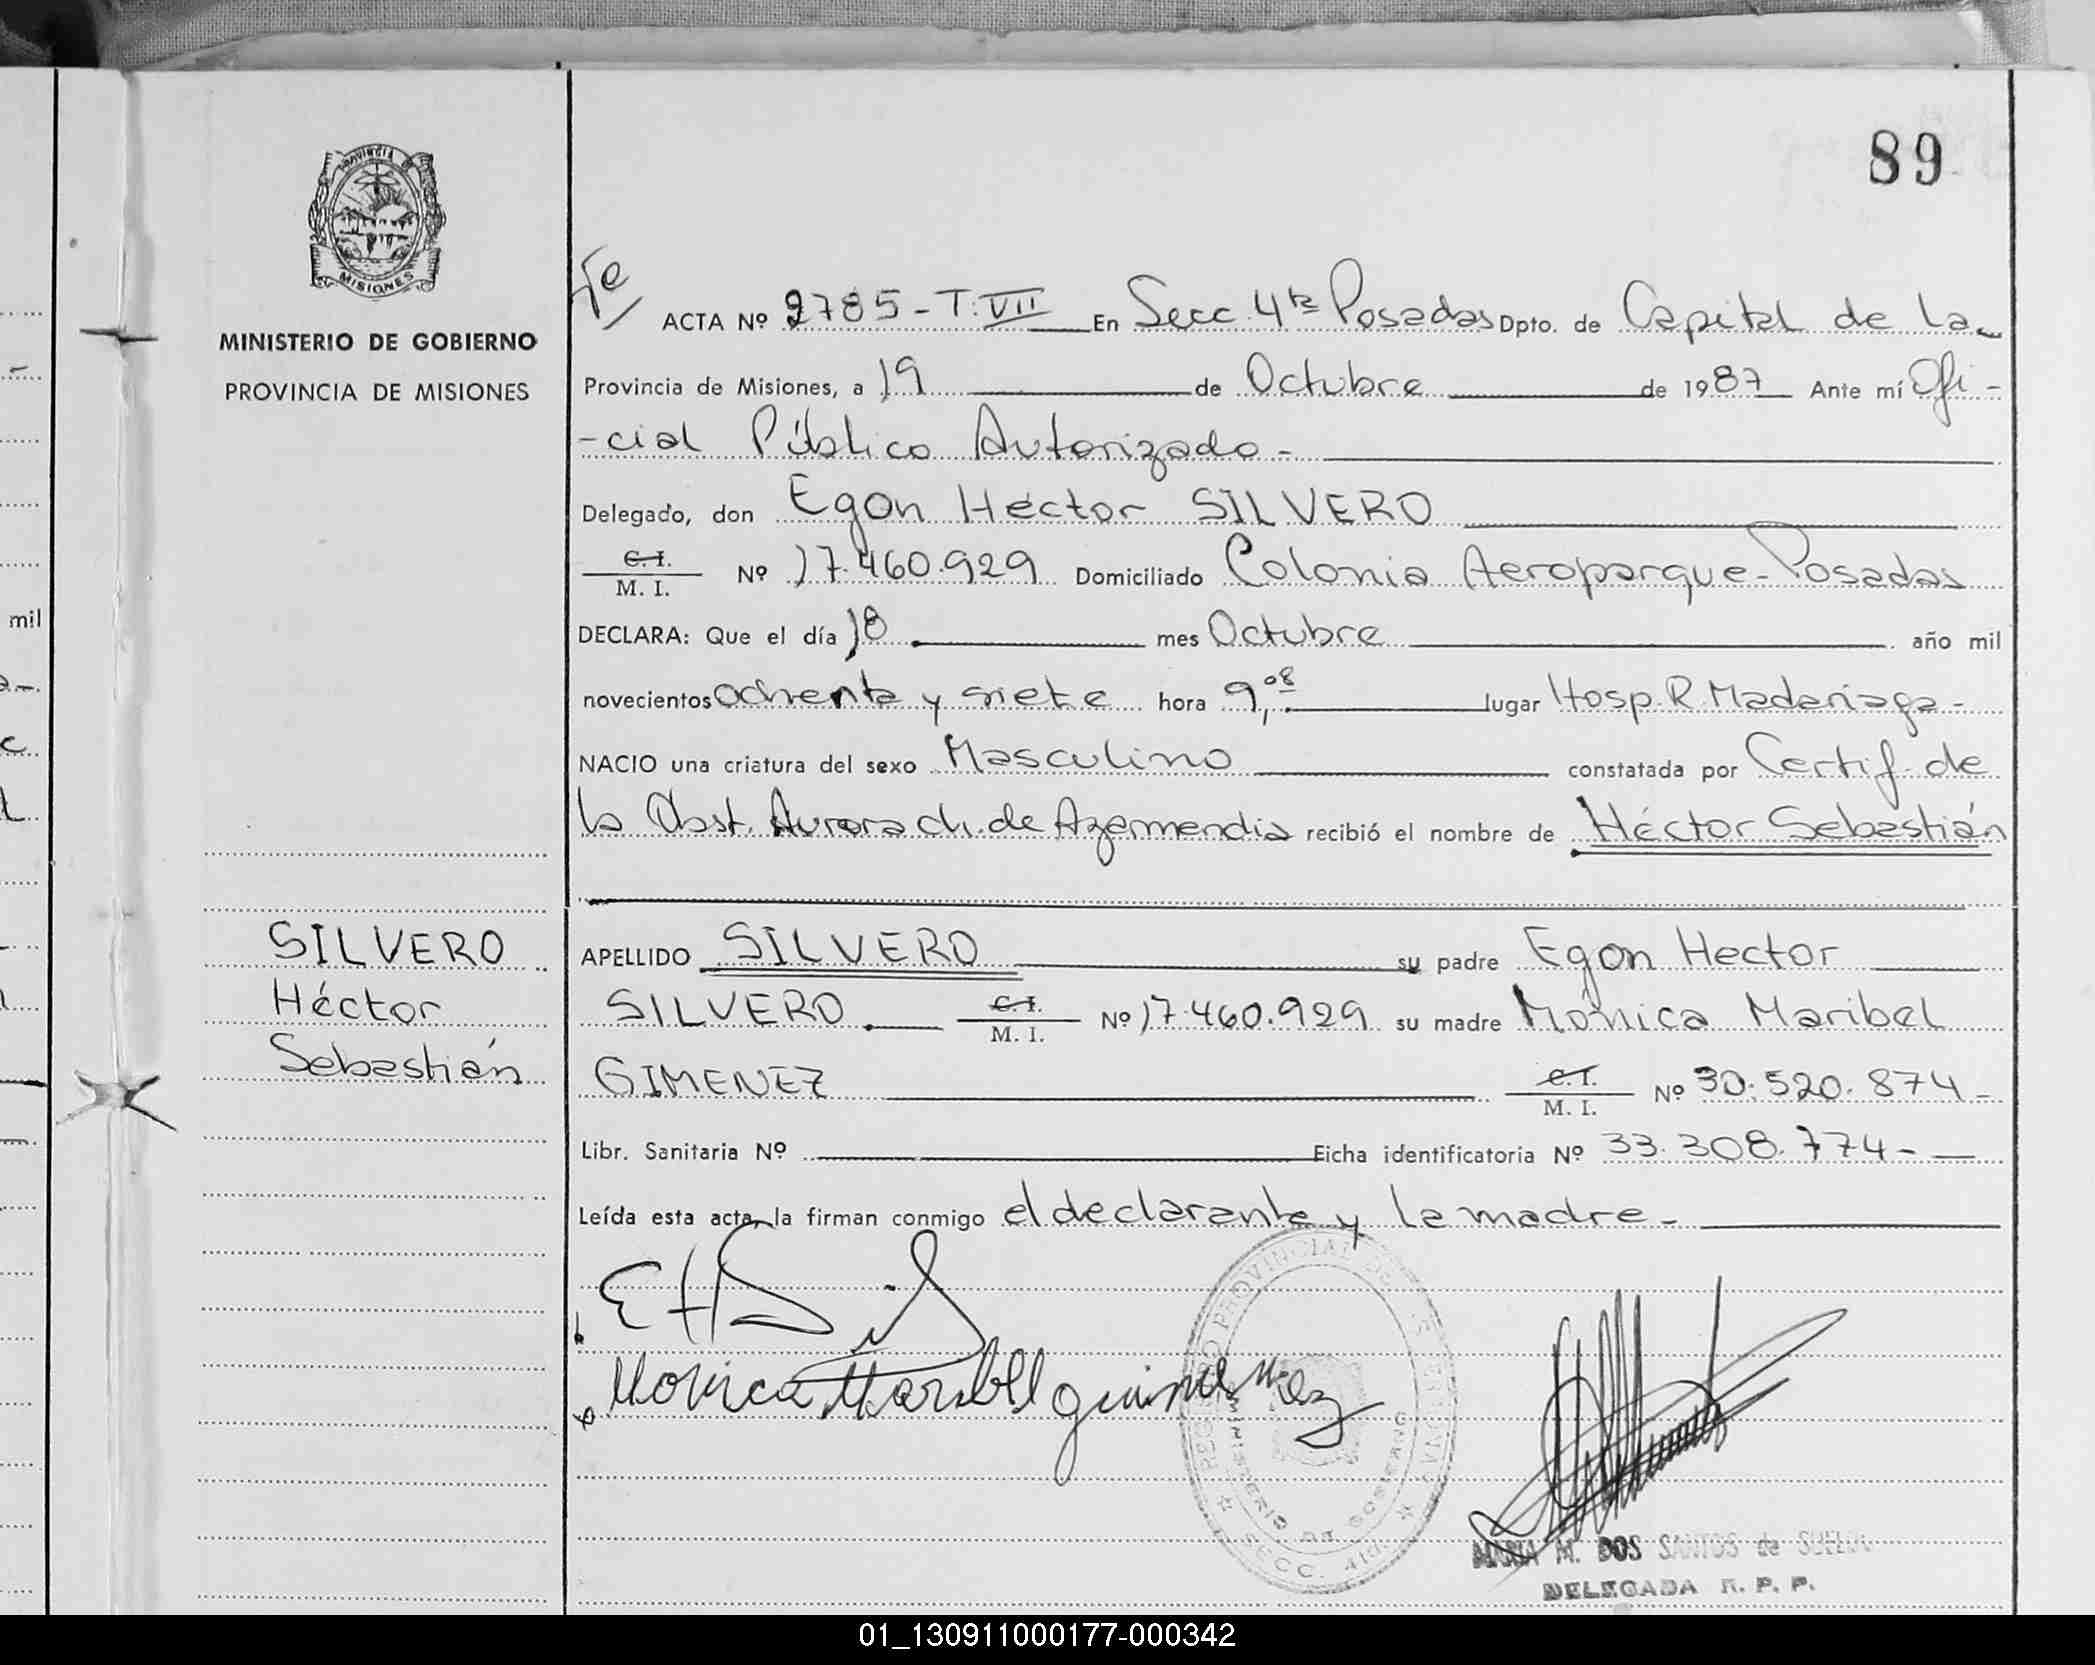 89
PROVINCIA
MISIONES
MINISTERIO DE GOBIERNO
PROVINCIA DE MISIONES
ACTA Nº 2785 - T. VII En Secc. 4ta Posadas Dpto. de Capital de la
Provincia de Misiones, a 19 de Octubre de 1987 Ante mí Ofi-
-cial Público Autorizado-
Delegado, don Egon Héctor SILVERO
C. I.
M. I. Nº 17.460.929 Domiciliado Colonia Aeroparque-Posadas
mil
DECLARA: Que el día 18 mes Octubre año mil
novecientos ochenta y siete hora 9,08 lugar Hosp. R. Madariaga-
NACIO una criatura del sexo Masculino constatada por Certif. de
la Obst. Aurora ch. de Azarmendia recibió el nombre de Héctor Sebastián
SILVERO
Héctor
Sebastián
APELLIDO SILVERO su padre Egon Hector
SILVERO C. I. M. I. Nº 17.460.929 su madre Mónica Maribel
GIMENEZ C. I. M. I. Nº 30.520.874-
Libr. Sanitaria Nº Ficha identificatoria Nº 33.308.774-
Leída esta acta, la firman conmigo el declarante y la madre-
EH Sil
Monica Maribel
REGISTRO PROVINCIAL DE
MINISTERIO DE GOBIERNO
SECC. 4ta
MARIA M. DOS SANTOS de
DELEGADA R. P. P.
01_130911000177-000342